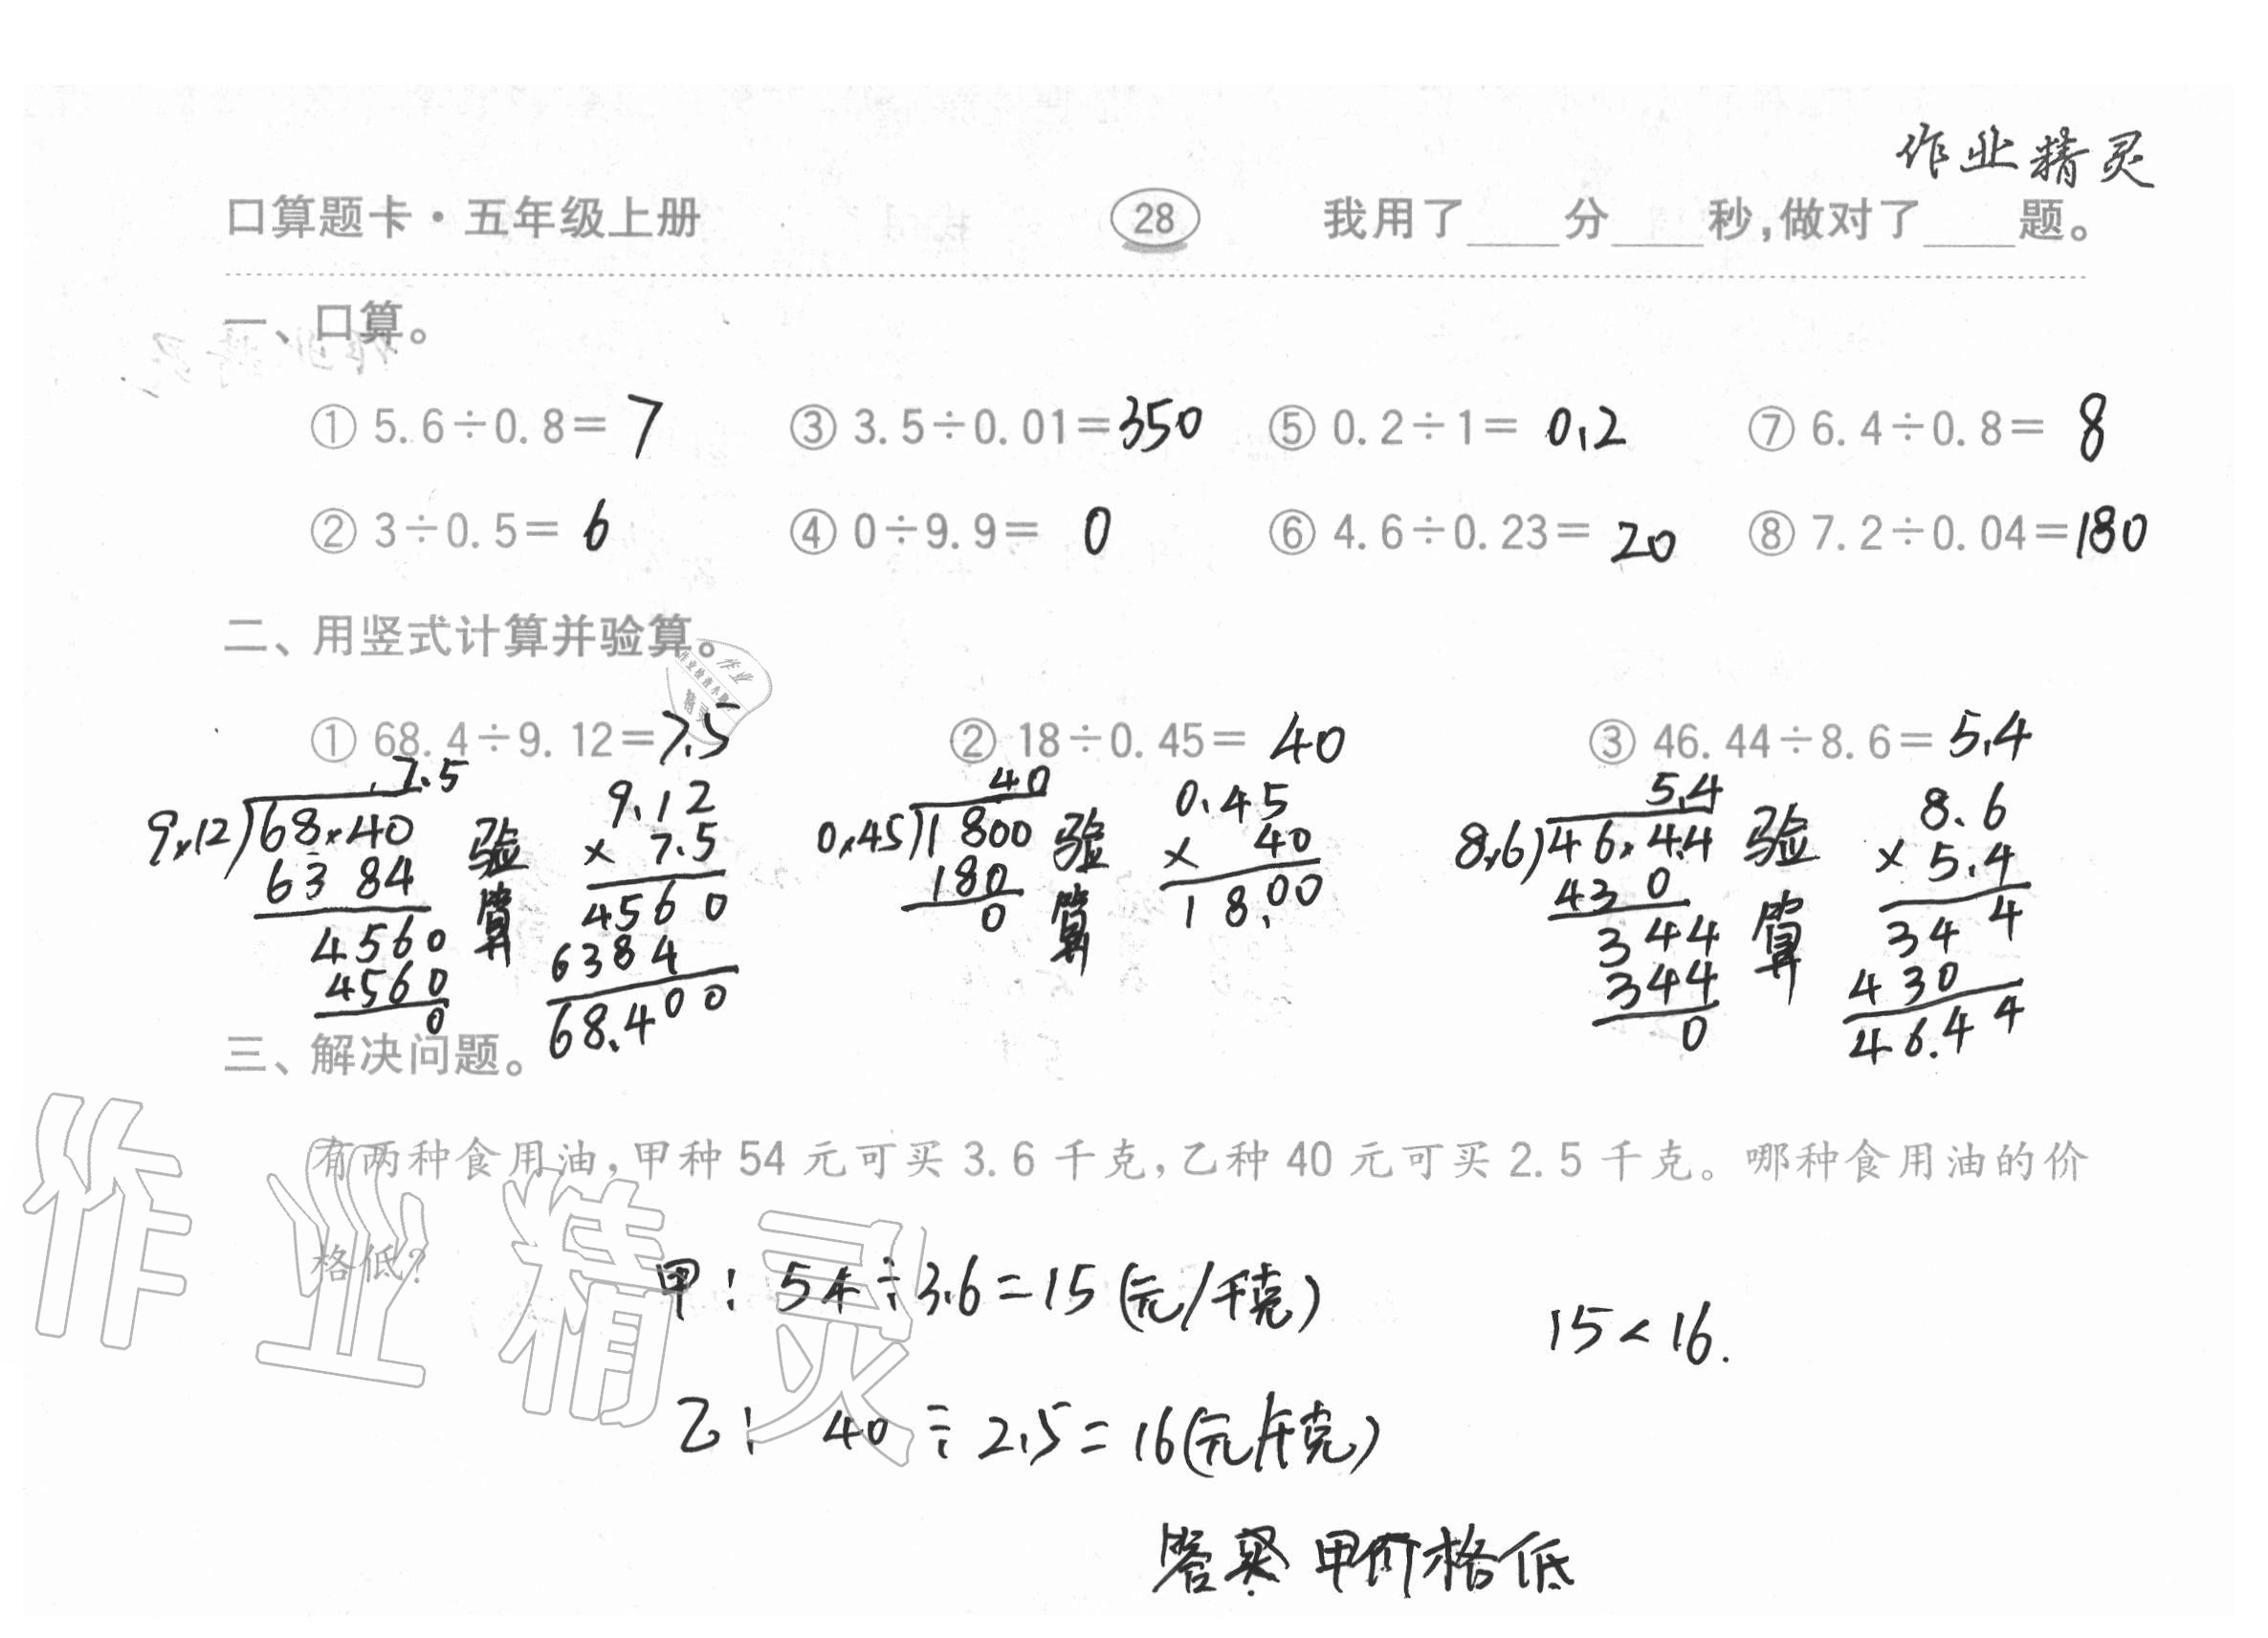 作业精灵
口算题卡·五年级上册 28 我用了____分____秒,做对了____题。
一、口算。
① 5.6÷0.8= 7 ③ 3.5÷0.01=350 ⑤ 0.2÷1= 0.2 ⑦ 6.4÷0.8= 8
② 3÷0.5= 6 ④ 0÷9.9= 0 ⑥ 4.6÷0.23= 20 ⑧ 7.2÷0.04=180
二、用竖式计算并验算。
作业
作业检查小助手
精灵
① 68.4÷9.12=7.5 ② 18÷0.45= 40 ③ 46.44÷8.6= 5.4
7.5
9.12)68.40
63 84
4560
4560
0
验算
9.12
× 7.5
4560
6384
68.400
40
0.45)1800
180
0
验算
0.45
× 40
18.00
5.4
8.6)46.44
430
344
344
0
验算
8.6
× 5.4
344
430
46.44
三、解决问题。
有两种食用油,甲种 54 元可买 3.6 千克,乙种 40 元可买 2.5 千克。哪种食用油的价
格低?
甲: 54÷3.6=15(元/千克)
15<16.
乙: 40÷2.5=16(元/千克)
答案 甲价格低
作业精灵